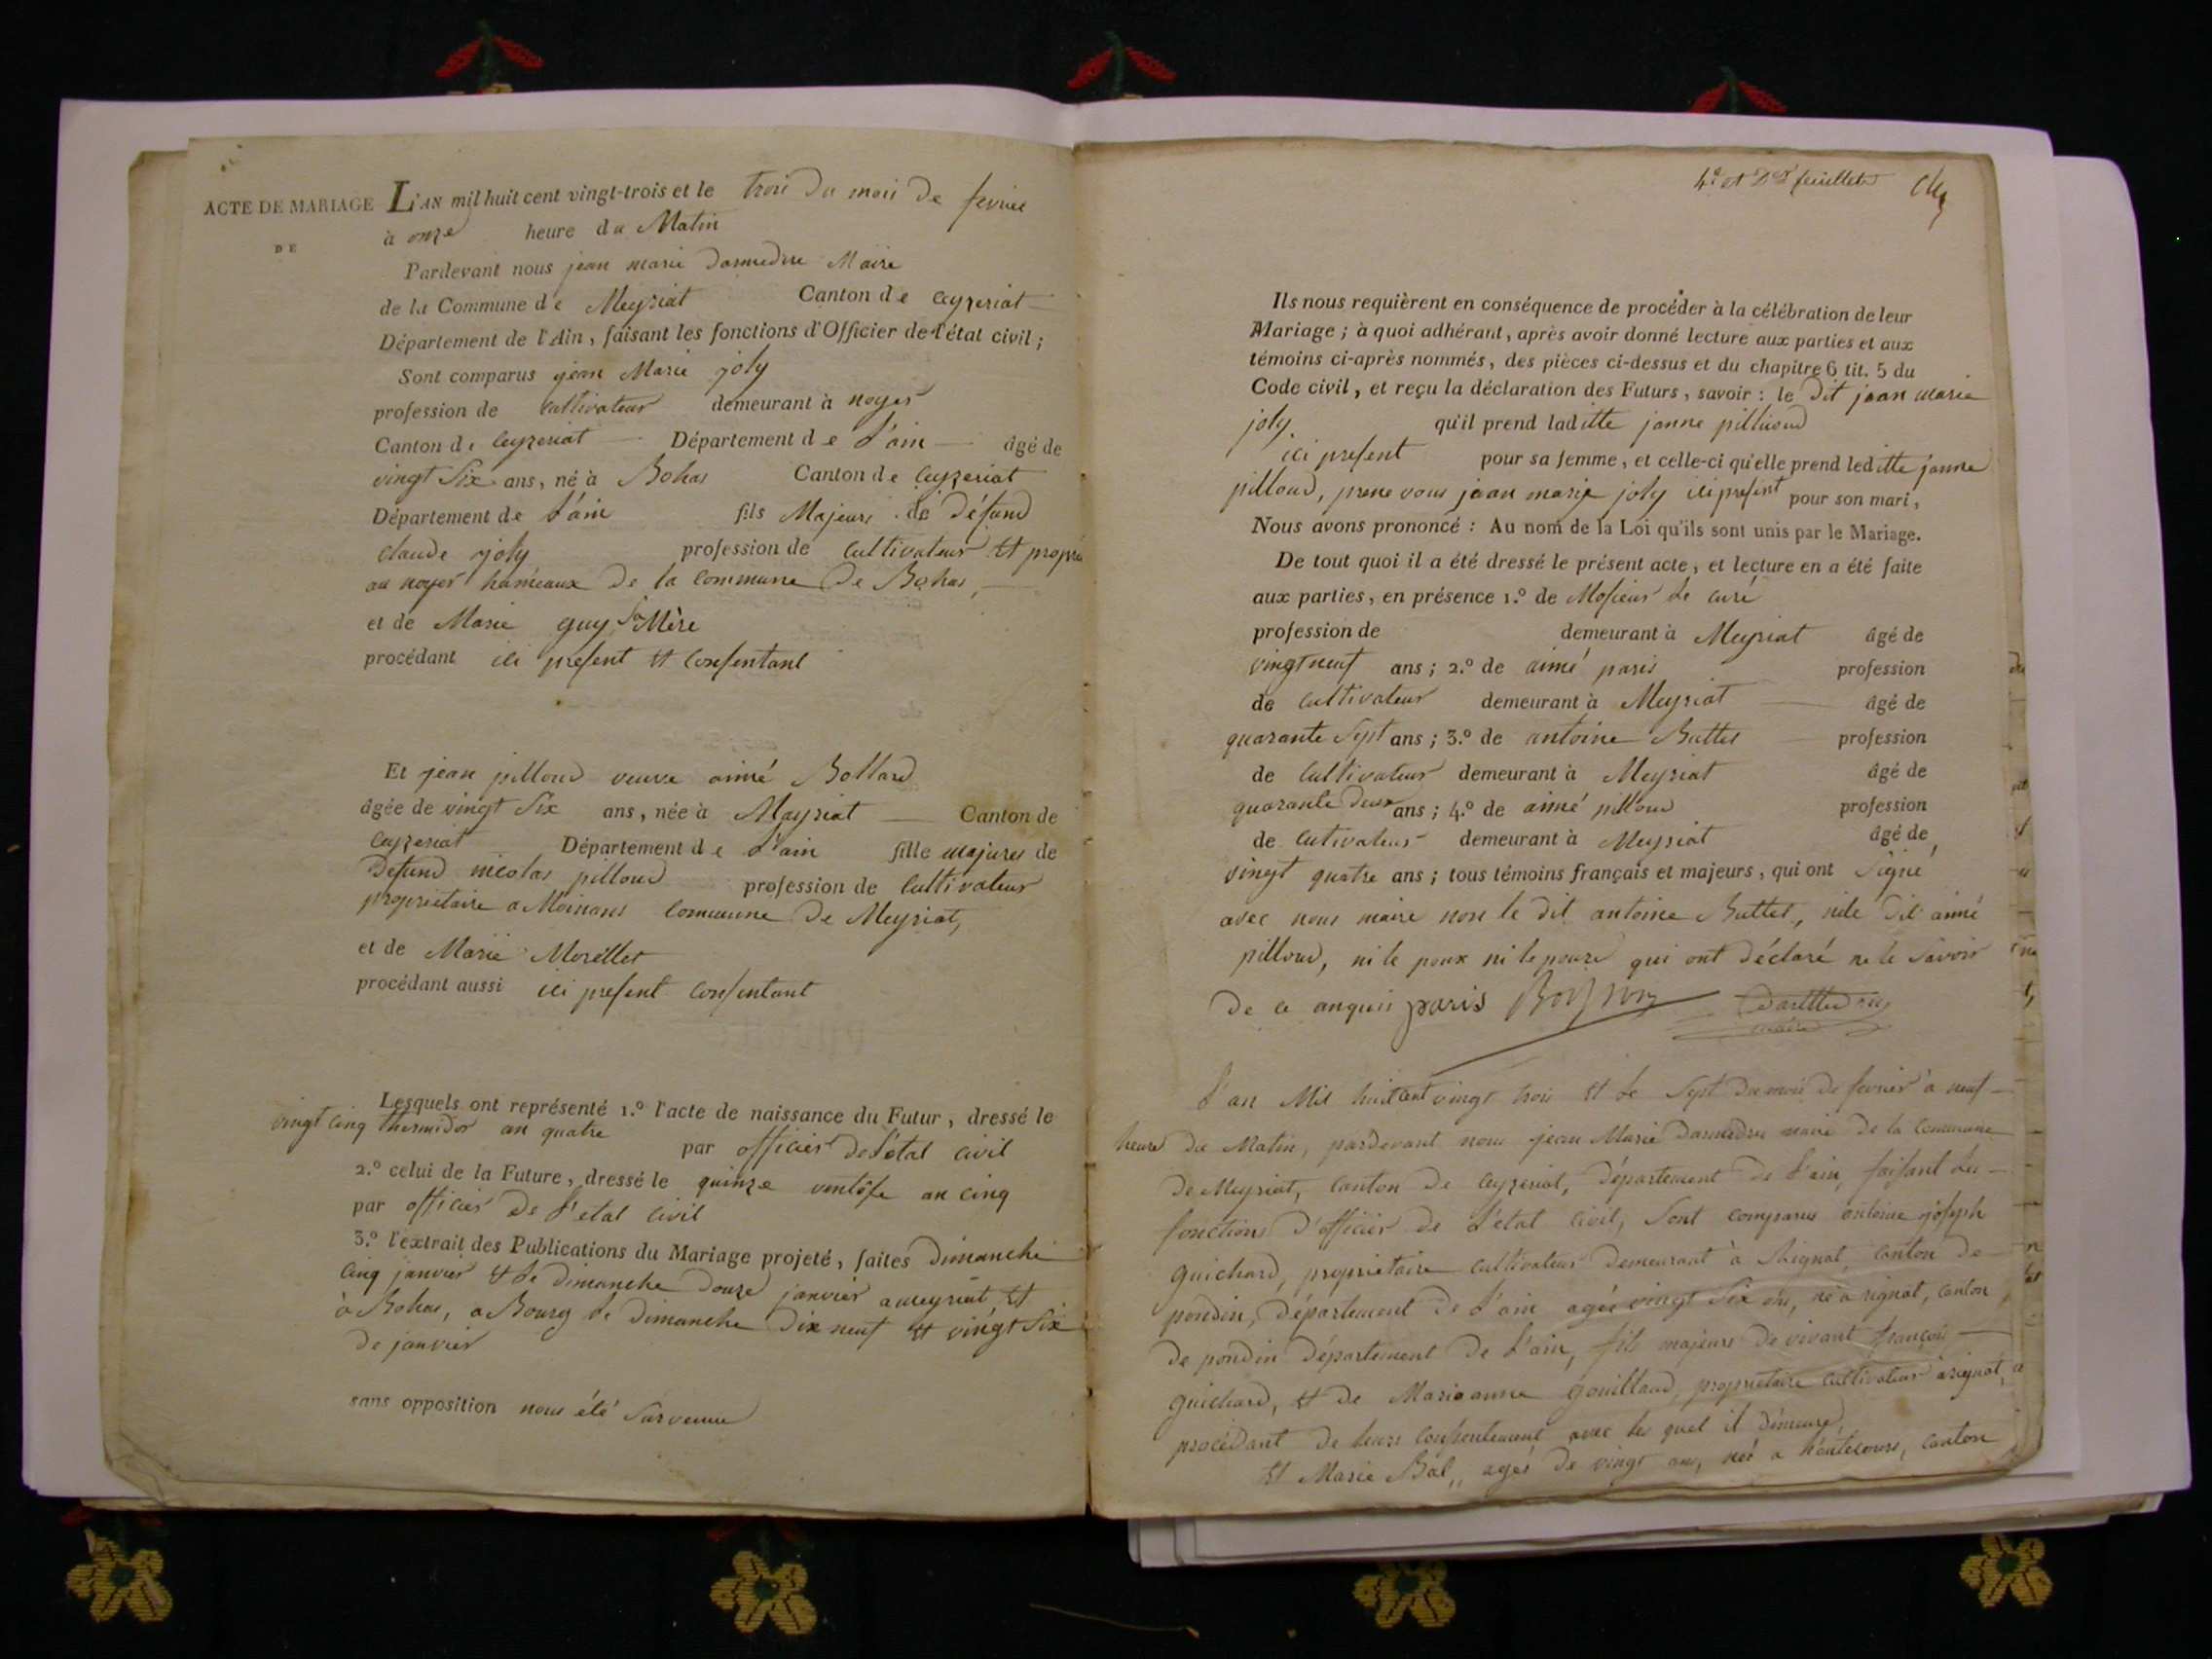 ACTE DE MARIAGE
DE
L'AN mil huit cent vingt-trois et le trois du mois de fevrier
à onze heure du Matin
Pardevant nous jean marie Darmedru Maire
de la Commune de Meyriat Canton de ceyzeriat
Département de l'Ain, faisant les fonctions d'Officier de l'état civil;
Sont comparus jean Marie joly
profession de cultivateur demeurant à noyer
Canton de Ceyzeriat Département de L'ain âgé de
vingt Six ans, né à Bohas Canton de Ceyzeriat
Département de L'ain fils Majeurs de Défund
claude joly profession de Cultivateur et propri
au noyer hameaux de la commune de Bohas,
et de Marie guy Sa Mère
procédant ici present et Consentant
Et jean pilloud veuve aimé Bollard
âgée de vingt Six ans, née à Mayriat Canton de
Ceyzeriat Département de L'ain fille majures de
Défund nicolas pilloud profession de Cultivateur
proprietaire a Moinans commune de Meyriat,
et de Marie Morellet
procédant aussi ici present consentant
Lesquels ont représenté 1.º l'acte de naissance du Futur, dressé le
vingt cinq thermidor an quatre par officier de L'état civil
2.º celui de la Future, dressé le quinze ventôse an cinq
par officier de L'etat civil
3.º l'extrait des Publications du Mariage projeté, faites dimanche
cinq janvier et le dimanche douze janvier a meyriat, et
à Bohas, a Bourg le dimanche dix neuf et vingt Six
de janvier
sans opposition nous été Survenue
4.e et D.er feuillet
Ils nous requièrent en conséquence de procéder à la célébration de leur
Mariage; à quoi adhérant, après avoir donné lecture aux parties et aux
témoins ci-après nommés, des pièces ci-dessus et du chapitre 6 tit. 5 du
Code civil, et reçu la déclaration des Futurs, savoir: le dit jean marie
joly qu'il prend laditte janne pilluoud
ici present pour sa femme, et celle-ci qu'elle prend leditte janne
pilloud, prene vous jean marie joly ici present pour son mari,
Nous avons prononcé: Au nom de la Loi qu'ils sont unis par le Mariage.
De tout quoi il a été dressé le présent acte, et lecture en a été faite
aux parties, en présence 1.º de Mosieur Le curé
profession de demeurant à Meyriat âgé de
vingt neuf ans; 2.º de aimé paris profession
de cultivateur demeurant à Meyriat âgé de
quarante Sept ans; 3.º de antoine Buttet profession
de Cultivateur demeurant à Meyriat âgé de
quarante deux ans; 4.º de aimé pilloud profession
de Cutivateur demeurant à Meyriat âgé de
vingt quatre ans; tous témoins français et majeurs, qui ont Signé
avec nous maire non le dit antoine Buttet, ni le dit aimé
pilloud, ni le poux ni le pouse qui ont déclaré ne le Savoir
de ce anquis paris
L'an Mil huit cent vingt trois et le Sept du mois de fevrier à neuf
heure du Matin, pardevant nous jean Marie Darmedru maire de la Commune
de Meyriat, Canton de Ceyzeriat, département de L'ain, faisant les
fonctions d'officier de L'état civil, Sont comparus antoine joseph
guichard, proprietaire cultivateur demeurant à Rignat, canton de
pondin, département de L'ain agée vingt Six ans, né a rignat, canton
de pondin département de L'ain, fils majeure de vivant françois
guichard, et de Marie anne gouilland, proprietaire cultivateur a rignat, a
procédant de leurs consentement avec les quel il demeure,
et Marie Bal, agés de vingt ans, neé a hautecours, canton